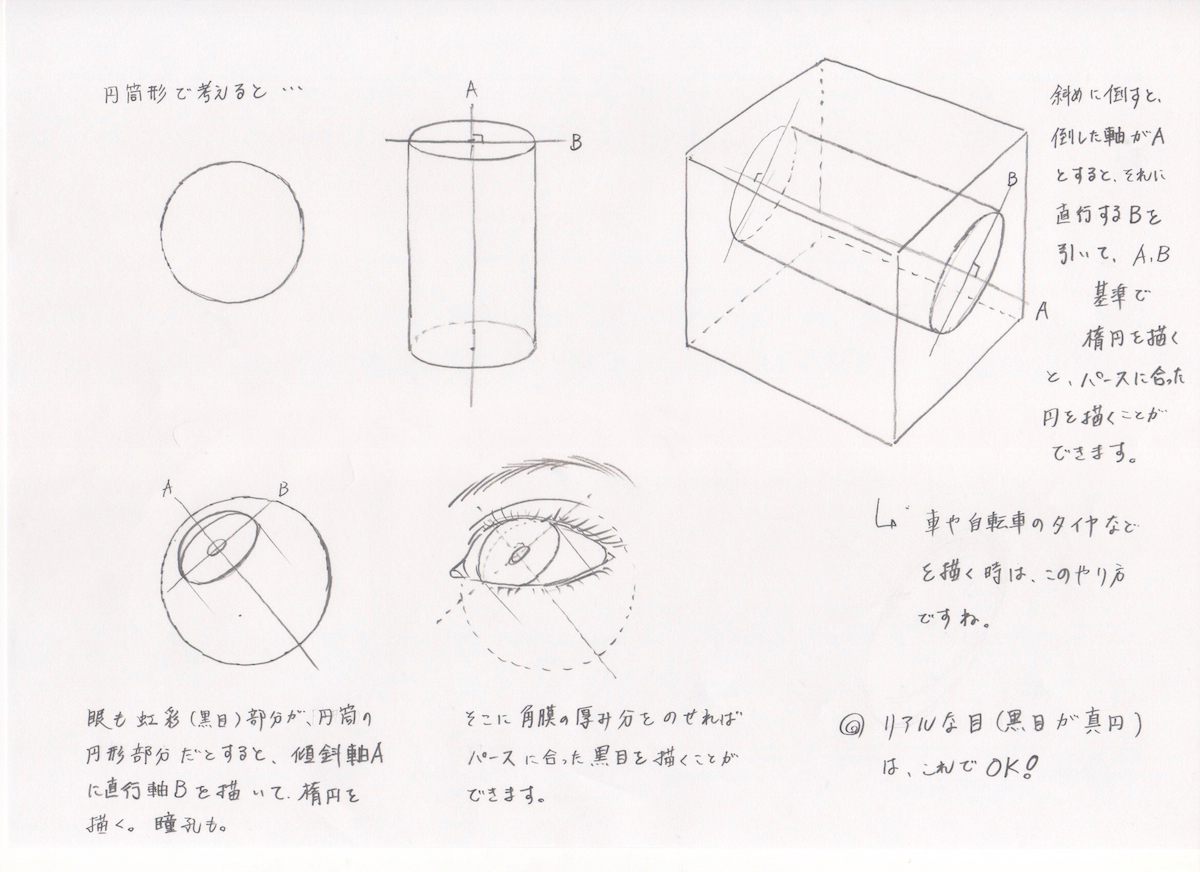 円筒形で考えると…
A
B
斜めに倒すと、
倒した軸がA
とすると、それに
直行するBを
引いて、A,B
基準で
楕円を描く
と、パースに合った
円を描くことが
できます。
B
A
A
B
車や自転車のタイヤなど
を描く時は、このやり方
ですね。
眼も虹彩(黒目)部分が、円筒の
円形部分だとすると、傾斜軸A
に直行軸Bを描いて、楕円を
描く。瞳孔も。
そこに角膜の厚み分をのせれば
パースに合った黒目を描くことが
できます。
◎ リアルな目(黒目が真円)
は、これでOK!